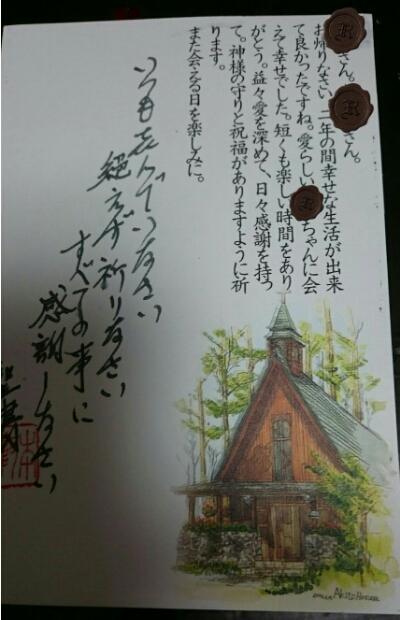 さん。
さん。
お帰りなさい、二年の間幸せな生活が出来
て良かったですね。愛らしいちゃんに会
えて幸せでした。短くも楽しい時間をあり
がとう。益々愛を深めて、日々感謝を持っ
て。神様の守りと祝福がありますように祈
ります。
また会える日を楽しみに。
いつも喜んでいなさい
絶えず祈りなさい
すべての事に
感謝しなさい